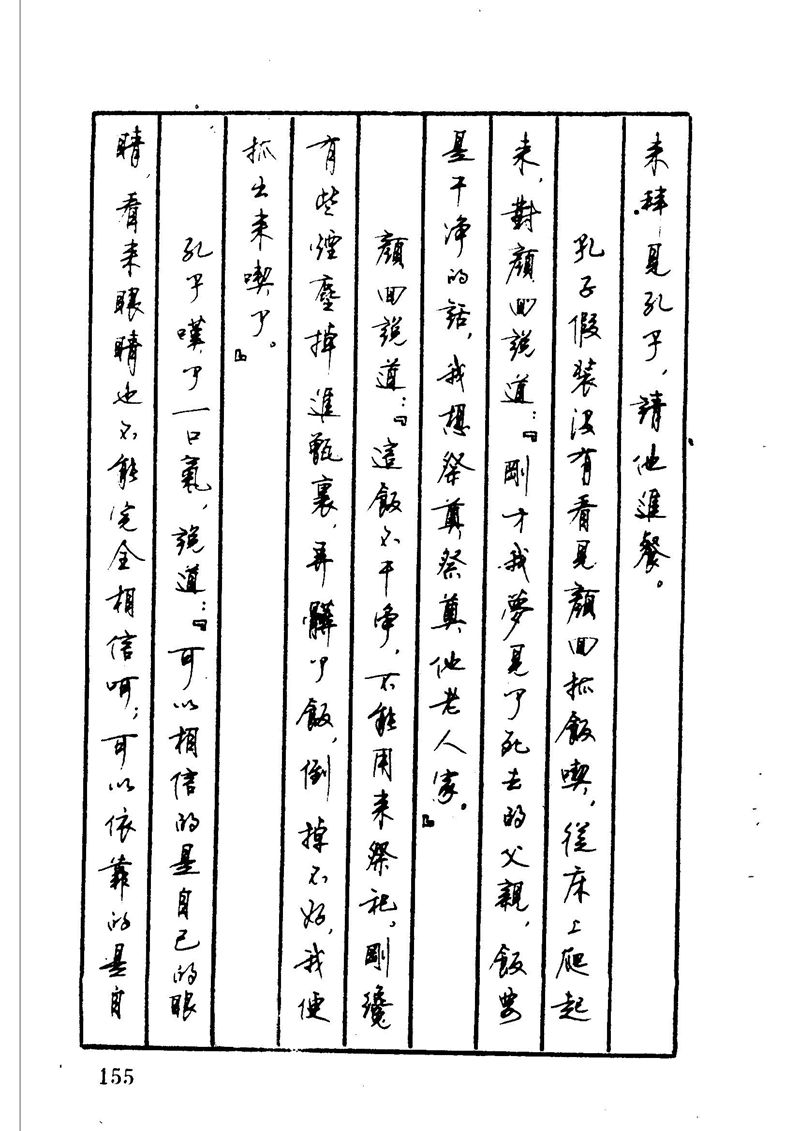 来拜見孔子，請他進餐。
孔子假装没有看見顔回抓飯喫，從床上爬起
来，對顔回説道：『剛才我夢見了死去的父親，飯要
是干净的話，我想祭奠祭奠他老人家。』
顔回説道：『這飯不干净，不能用来祭祀。剛纔
有些煙塵掉進甑裏，弄髒了飯，倒掉不好，我便
抓出来喫了。』
孔子嘆了一口氣，説道：『可以相信的是自己的眼
睛，看来眼睛也不能完全相信呵；可以依靠的是自
155